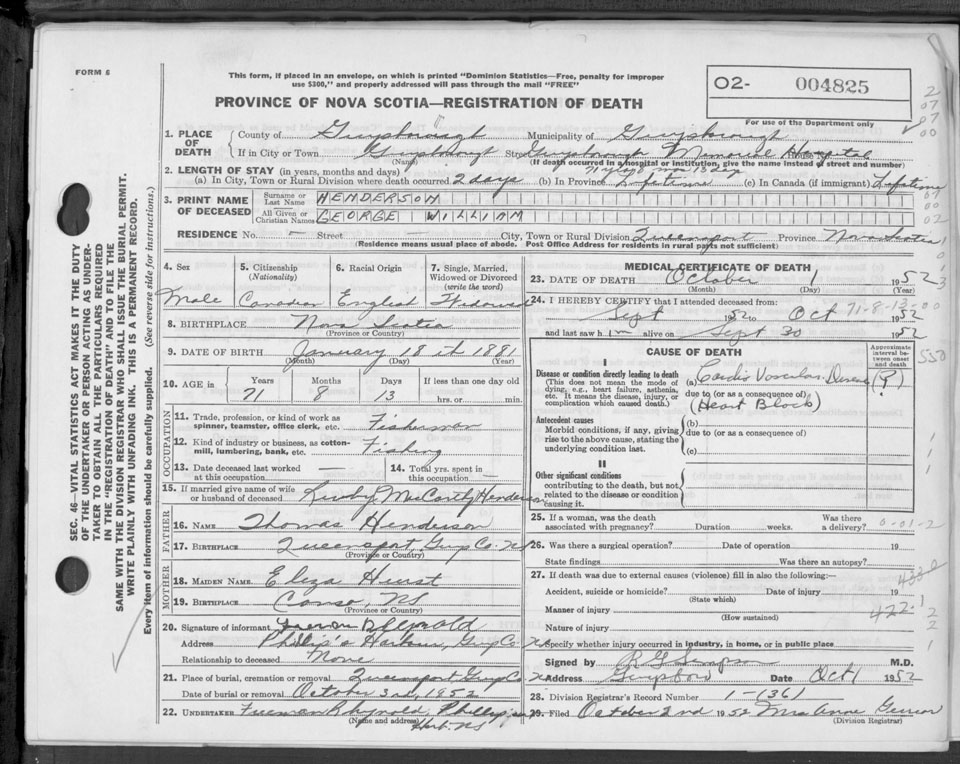 FORM 6
This form, if placed in an envelope, on which is printed "Dominion Statistics—Free, penalty for improper
use $300," and properly addressed will pass through the mail "FREE"
O2- 004825
For use of the Department only
PROVINCE OF NOVA SCOTIA—REGISTRATION OF DEATH
1. PLACE OF DEATH County of Guysborough Municipality of Guysborough
If in City or Town Guysborough St. Guysborough Memorial Hospital House No.
(Name) (If death occurred in a hospital or institution, give the name instead of street and number)
2. LENGTH OF STAY (in years, months and days) 71 yrs 8 mos 13 dys
(a) In City, Town or Rural Division where death occurred 2 days (b) In Province Lifetime (c) In Canada (if immigrant) Lifetime
3. PRINT NAME OF DECEASED Surname or Last Name HENDERSON
All Given or Christian Names GEORGE WILLIAM
RESIDENCE No. – Street City, Town or Rural Division Queensport Province Nova Scotia
(Residence means usual place of abode. Post Office Address for residents in rural parts not sufficient)
4. Sex Male
5. Citizenship (Nationality) Canadian
6. Racial Origin English
7. Single, Married, Widowed or Divorced (write the word) Widowed
8. BIRTHPLACE Nova Scotia
(Province or Country)
9. DATE OF BIRTH January 18th 1881
(Month) (Day) (Year)
10. AGE in Years 71 Months 8 Days 13 If less than one day old hrs. or min.
OCCUPATION
11. Trade, profession, or kind of work as spinner, teamster, office clerk, etc. Fisherman
12. Kind of industry or business, as cotton-mill, lumbering, bank, etc. Fishing
13. Date deceased last worked at this occupation —
14. Total yrs. spent in this occupation —
15. If married give name of wife or husband of deceased McCarthy Henderson
FATHER
16. NAME Thomas Henderson
17. BIRTHPLACE Queensport, Guys Co. NS
(Province or Country)
MOTHER
18. MAIDEN NAME Eliza Hurst
19. BIRTHPLACE Canso, NS
(Province or Country)
20. Signature of informant
Address Phillip's Harbour, Guys Co NS
Relationship to deceased None
21. Place of burial, cremation or removal Queensport Guys Co. NS
Date of burial or removal October 3rd, 1952
22. UNDERTAKER Freeman Rhynold, Phillip's
(Name and address) Harb. NS
MEDICAL CERTIFICATE OF DEATH
23. DATE OF DEATH October 1 1952
(Month) (Day) (Year)
24. I HEREBY CERTIFY that I attended deceased from:
Sept 1952 to Oct 1952
71-8-13-00
and last saw him alive on Sept 30 1952
CAUSE OF DEATH
Approximate interval between onset and death
I
Disease or condition directly leading to death
(This does not mean the mode of dying, e.g., heart failure, asthenia, etc. It means the disease, injury, or complication which caused death.)
(a) Cardio Vascular Disease (?)
due to (or as consequence of)
(Heart Block)
Antecedent causes
Morbid conditions, if any, giving rise to the above cause, stating the underlying condition last.
(b)
due to (or as consequence of)
(c)
II
Other significant conditions
contributing to the death, but not related to the disease or condition causing it.
25. If a woman, was the death associated with pregnancy? Duration weeks. Was there a delivery?
26. Was there a surgical operation? Date of operation 19
State findings Was there an autopsy?
27. If death was due to external causes (violence) fill in also the following:—
Accident, suicide or homicide? Date of injury 19
(State which)
Manner of injury
(How sustained)
422-1
Nature of injury
Specify whether injury occurred in industry, in home, or in public place
Signed by R G Simpson M.D.
Address Guysboro Date Oct 1 1952
28. Division Registrar's Record Number 1-(36)
29. Filed October 2nd 1952 Mrs Anne
(Division Registrar)
SEC. 46—VITAL STATISTICS ACT MAKES IT THE DUTY
OF THE UNDERTAKER OR PERSON ACTING AS UNDER-
TAKER TO OBTAIN ALL THE PARTICULARS REQUIRED
IN THE "REGISTRATION OF DEATH" AND TO FILE THE
SAME WITH THE DIVISION REGISTRAR WHO SHALL ISSUE THE BURIAL PERMIT.
WRITE PLAINLY WITH UNFADING INK. THIS IS A PERMANENT RECORD.
Every item of information should be carefully supplied. (See reverse side for instructions.)